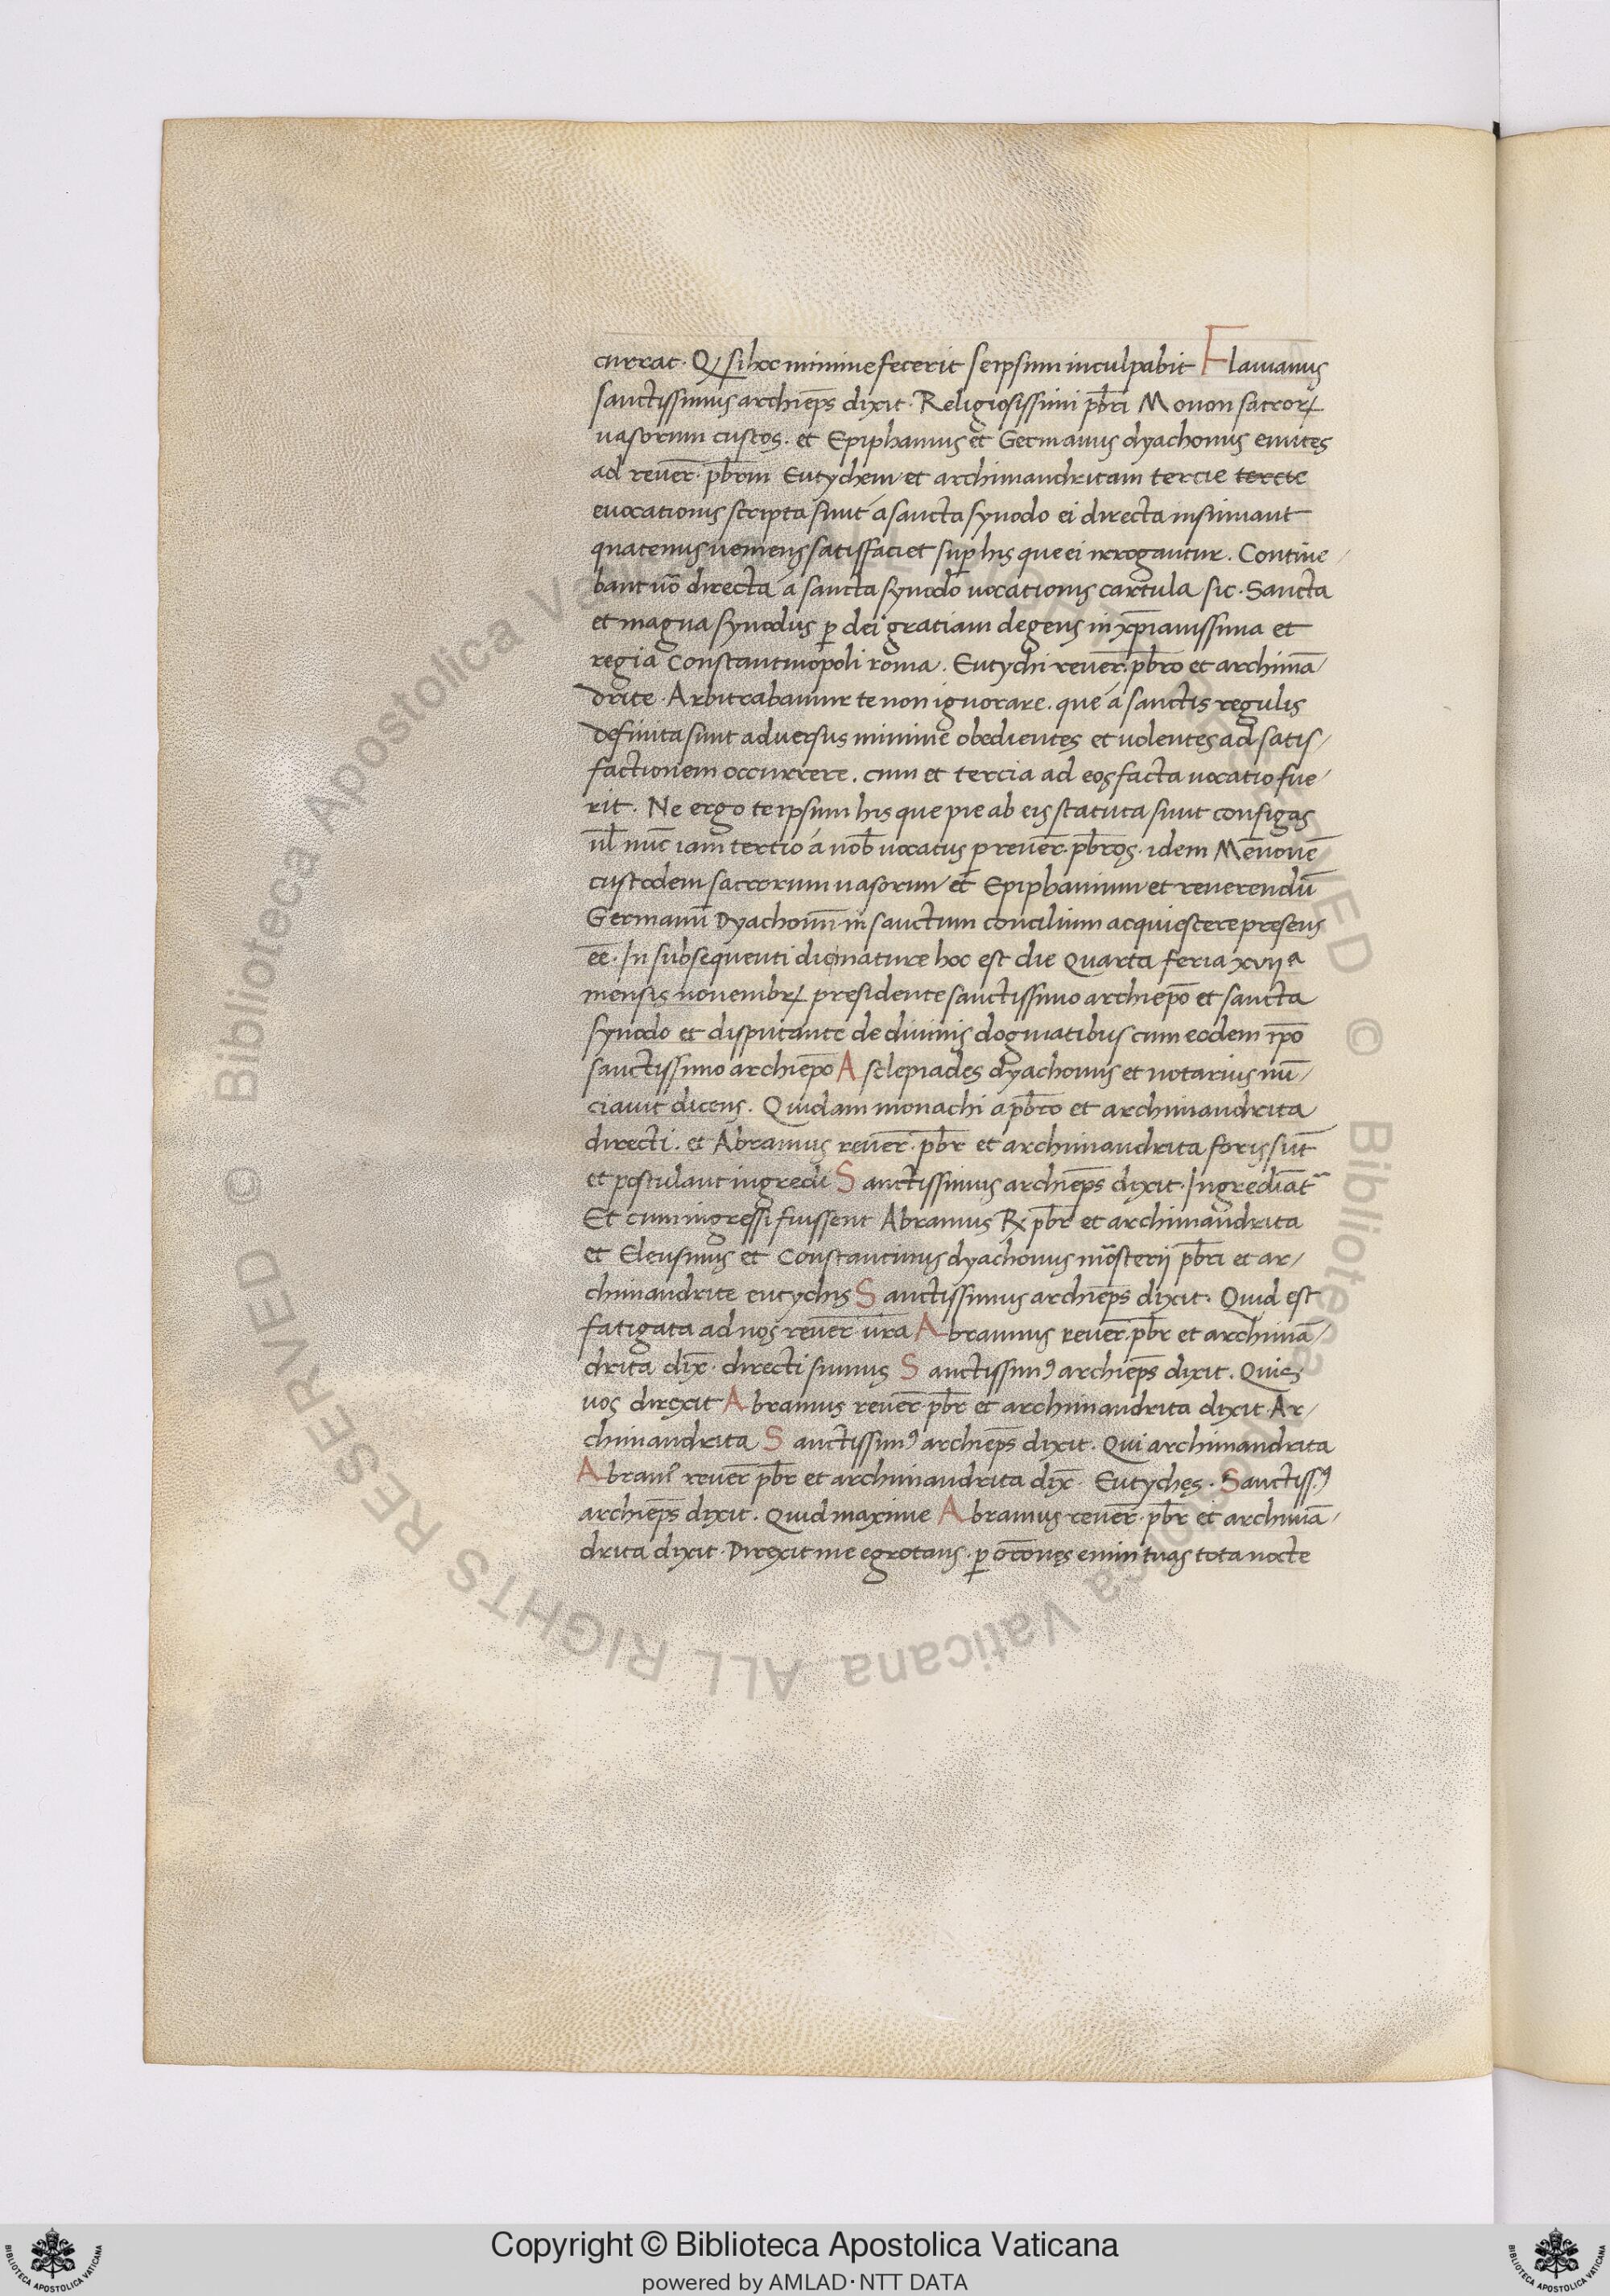 currat. Qꝫ si hoc minime fecerit seipsum inculpabit Flauianus
sanctissimus archiep̄s dixit. Religiosissimi pb̄ri Monon sacroꝝ
uasorum custos. et Epiphanius et Germanus dyachonus euntes
ad reuer̄. pb̄rm Eutychem et archimandritam tercie tercie
euocationis scripta sunt á sancta synodo ei directa insinuant
quatenus ueniens satisfaciet sup̄ his que ei irrogantur. Contine
bant uō directa á sancta synodo uocationis cartula sic. Sancta
et magna synodus ꝑ dei gratiam degens in xp̄ianissima et
regia Constantinopoli roma. Eutychi reuer̄. pb̄ro et archimā/
drite. Arbitrabamur te non ignorare. que á sanctis regulis
definita sunt aduersus minime obedientes et uolentes ad satis/
factionem occurrere. cum et tercia ad eos facta uocatio fue/
rit. Ne ergo te ipsum his que pie ab eis statuta sunt configas
ul̄ nūc iam tertio á nob̄ uocatus ꝑ reuer̄. pb̄ros. idem Mēnonē
custodem sacrorum uasorum et Epiphanium et reuerendū
Germanū dyachonū in sanctum concilium acquiescere presens
eē. In subsequenti dicmature hoc est die quarta feria xvijᵃ
mensis nouembrꝝ presidente sanctissimo archiep̄o et sancta
synodo et disputante de diuinis dogmatibus cum eodem ip̄o
sanctissimo archiep̄o Asclepiades dyachonus et notarius nū/
ciauit dicens. Quidam monachi a pb̄ro et archimandrita
directi. et Abramus reuer̄. pb̄r et archimandrita foris sūt
et postulant ingredi Sanctissimus archiep̄s dixit. Ingrediāt᷑
Et cum ingressi fuissent Abramus R̄ pb̄r et archimandrita
et Eleusinus et Constantinus dyachonus mōsterij pb̄ri et ar/
chimandrite eutychis Sanctissimus archiep̄s dixit. Quid est
fatigata ad nos reuer̄ ur̄a Abramus reuer̄. pb̄r et archimā/
drita dix̄. directi sumus Sanctissimꝰ archiep̄s dixit. Quis
uos direxit Abramus reuer̄ pb̄r et archimandrita dixit. Ar/
chimandrita Sanctissimꝰ archiep̄s dixit. Qui archimandrita
Abramꝰ reuer̄ pb̄r et archimandrita dix̄. Eutyches. Sanctissꝰ
archiep̄s dixit. Quid maxime Abramus reuer̄. pb̄r et archimā/
drita dixit. Direxit me egrotans. ꝑ or̄ones enim tuas tota nocte
© Biblioteca Apostolica Vaticana ALL RIGHTS RESERVED © Biblioteca Apostolica Vaticana ALL RIGHTS RESERVED
Copyright © Biblioteca Apostolica Vaticana
powered by AMLAD·NTT DATA
BIBLIOTECA APOSTOLICA VATICANA
BIBLIOTECA APOSTOLICA VATICANA